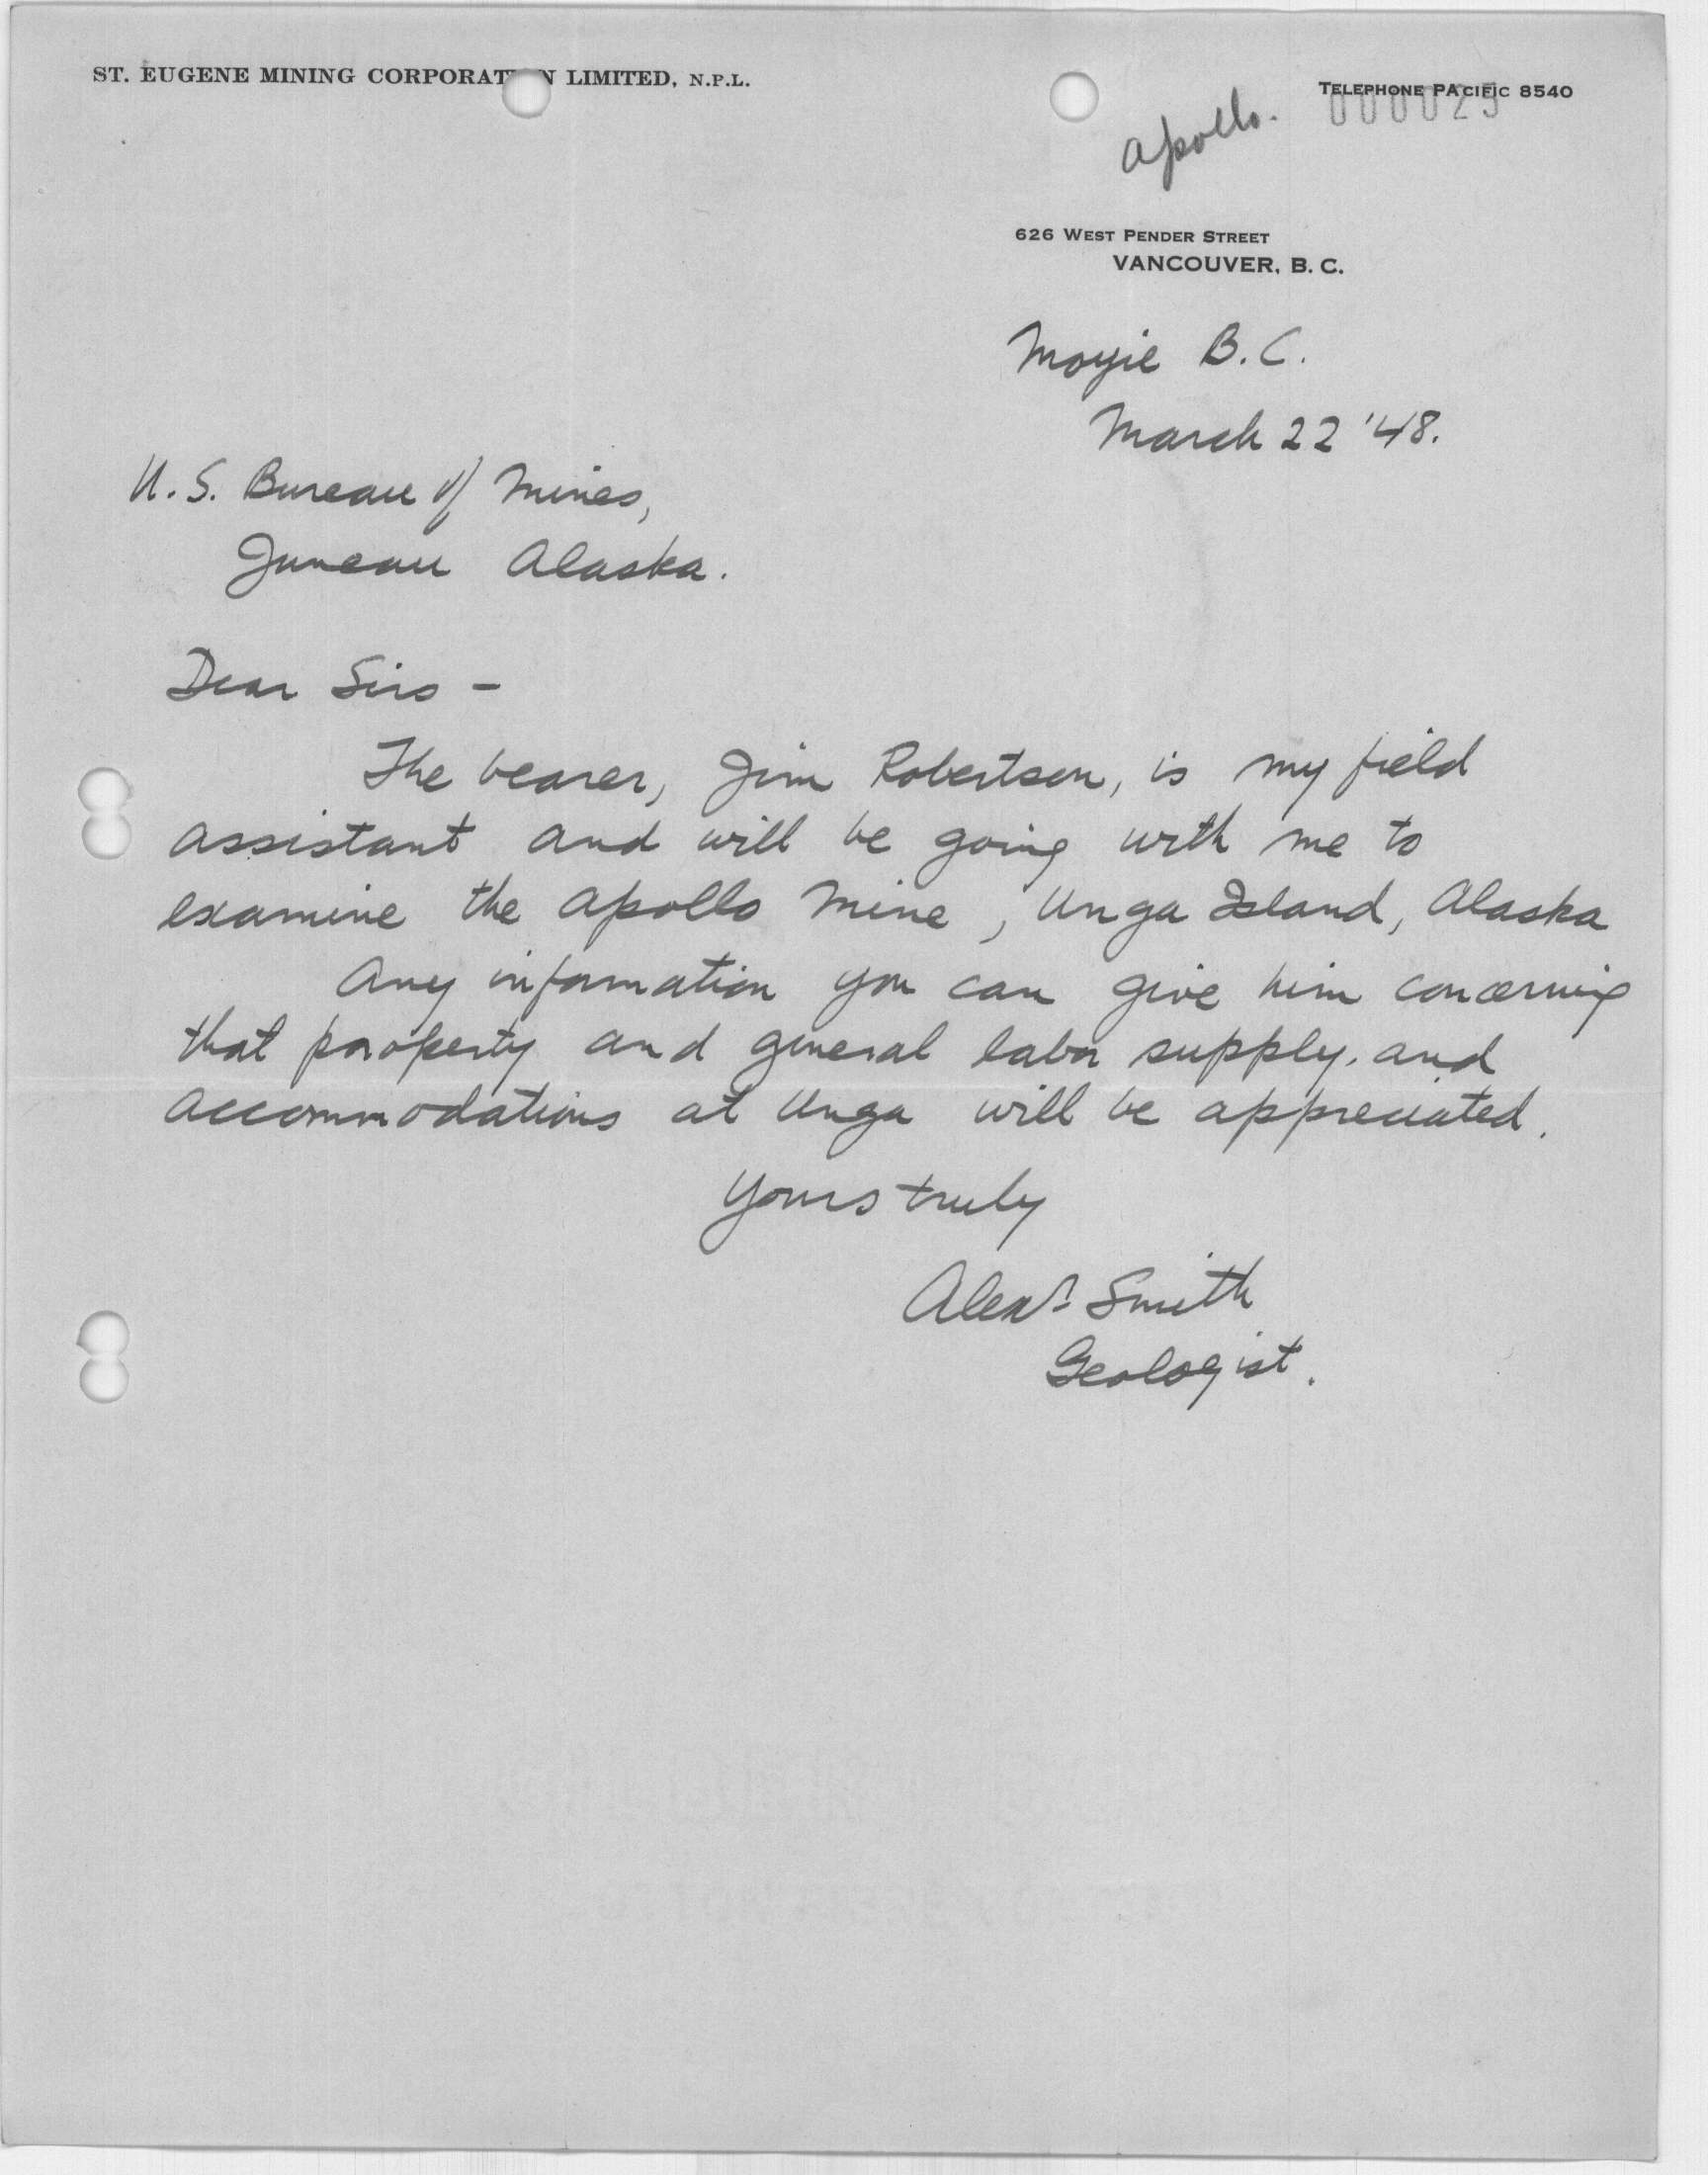 ST. EUGENE MINING CORPORATION LIMITED, N.P.L.
TELEPHONE PACIFIC 8540
000025
Apollo.
626 WEST PENDER STREET
VANCOUVER, B. C.
Moyie B.C.
March 22 '48.
U.S. Bureau of Mines,
Juneau Alaska.
Dear Sirs -
The bearer, Jim Robertson, is my field
assistant and will be going with me to
examine the Apollo Mine, Unga Island, Alaska
Any information you can give him concerning
that property and general labor supply, and
accommodations at Unga will be appreciated.
Yours truly
Alexr Smith
Geologist.